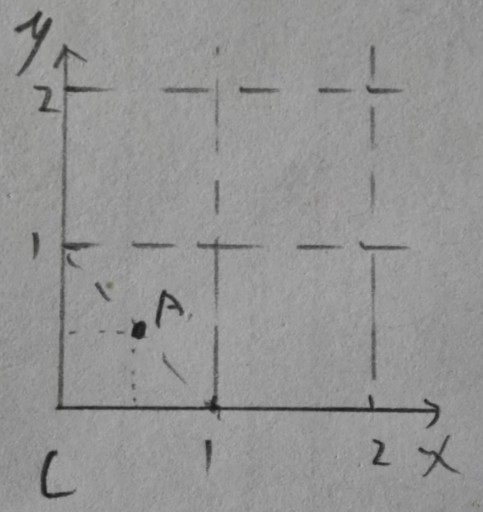 y
2
1
A
L
1
2
x